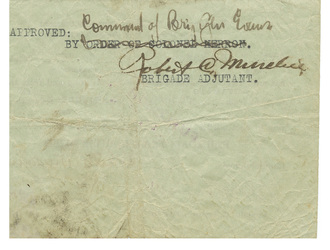 Command of Brig Gen Evans
APPROVED:
BY ORDER OF COLONEL HERRON.
Robert C.
BRIGADE ADJUTANT.